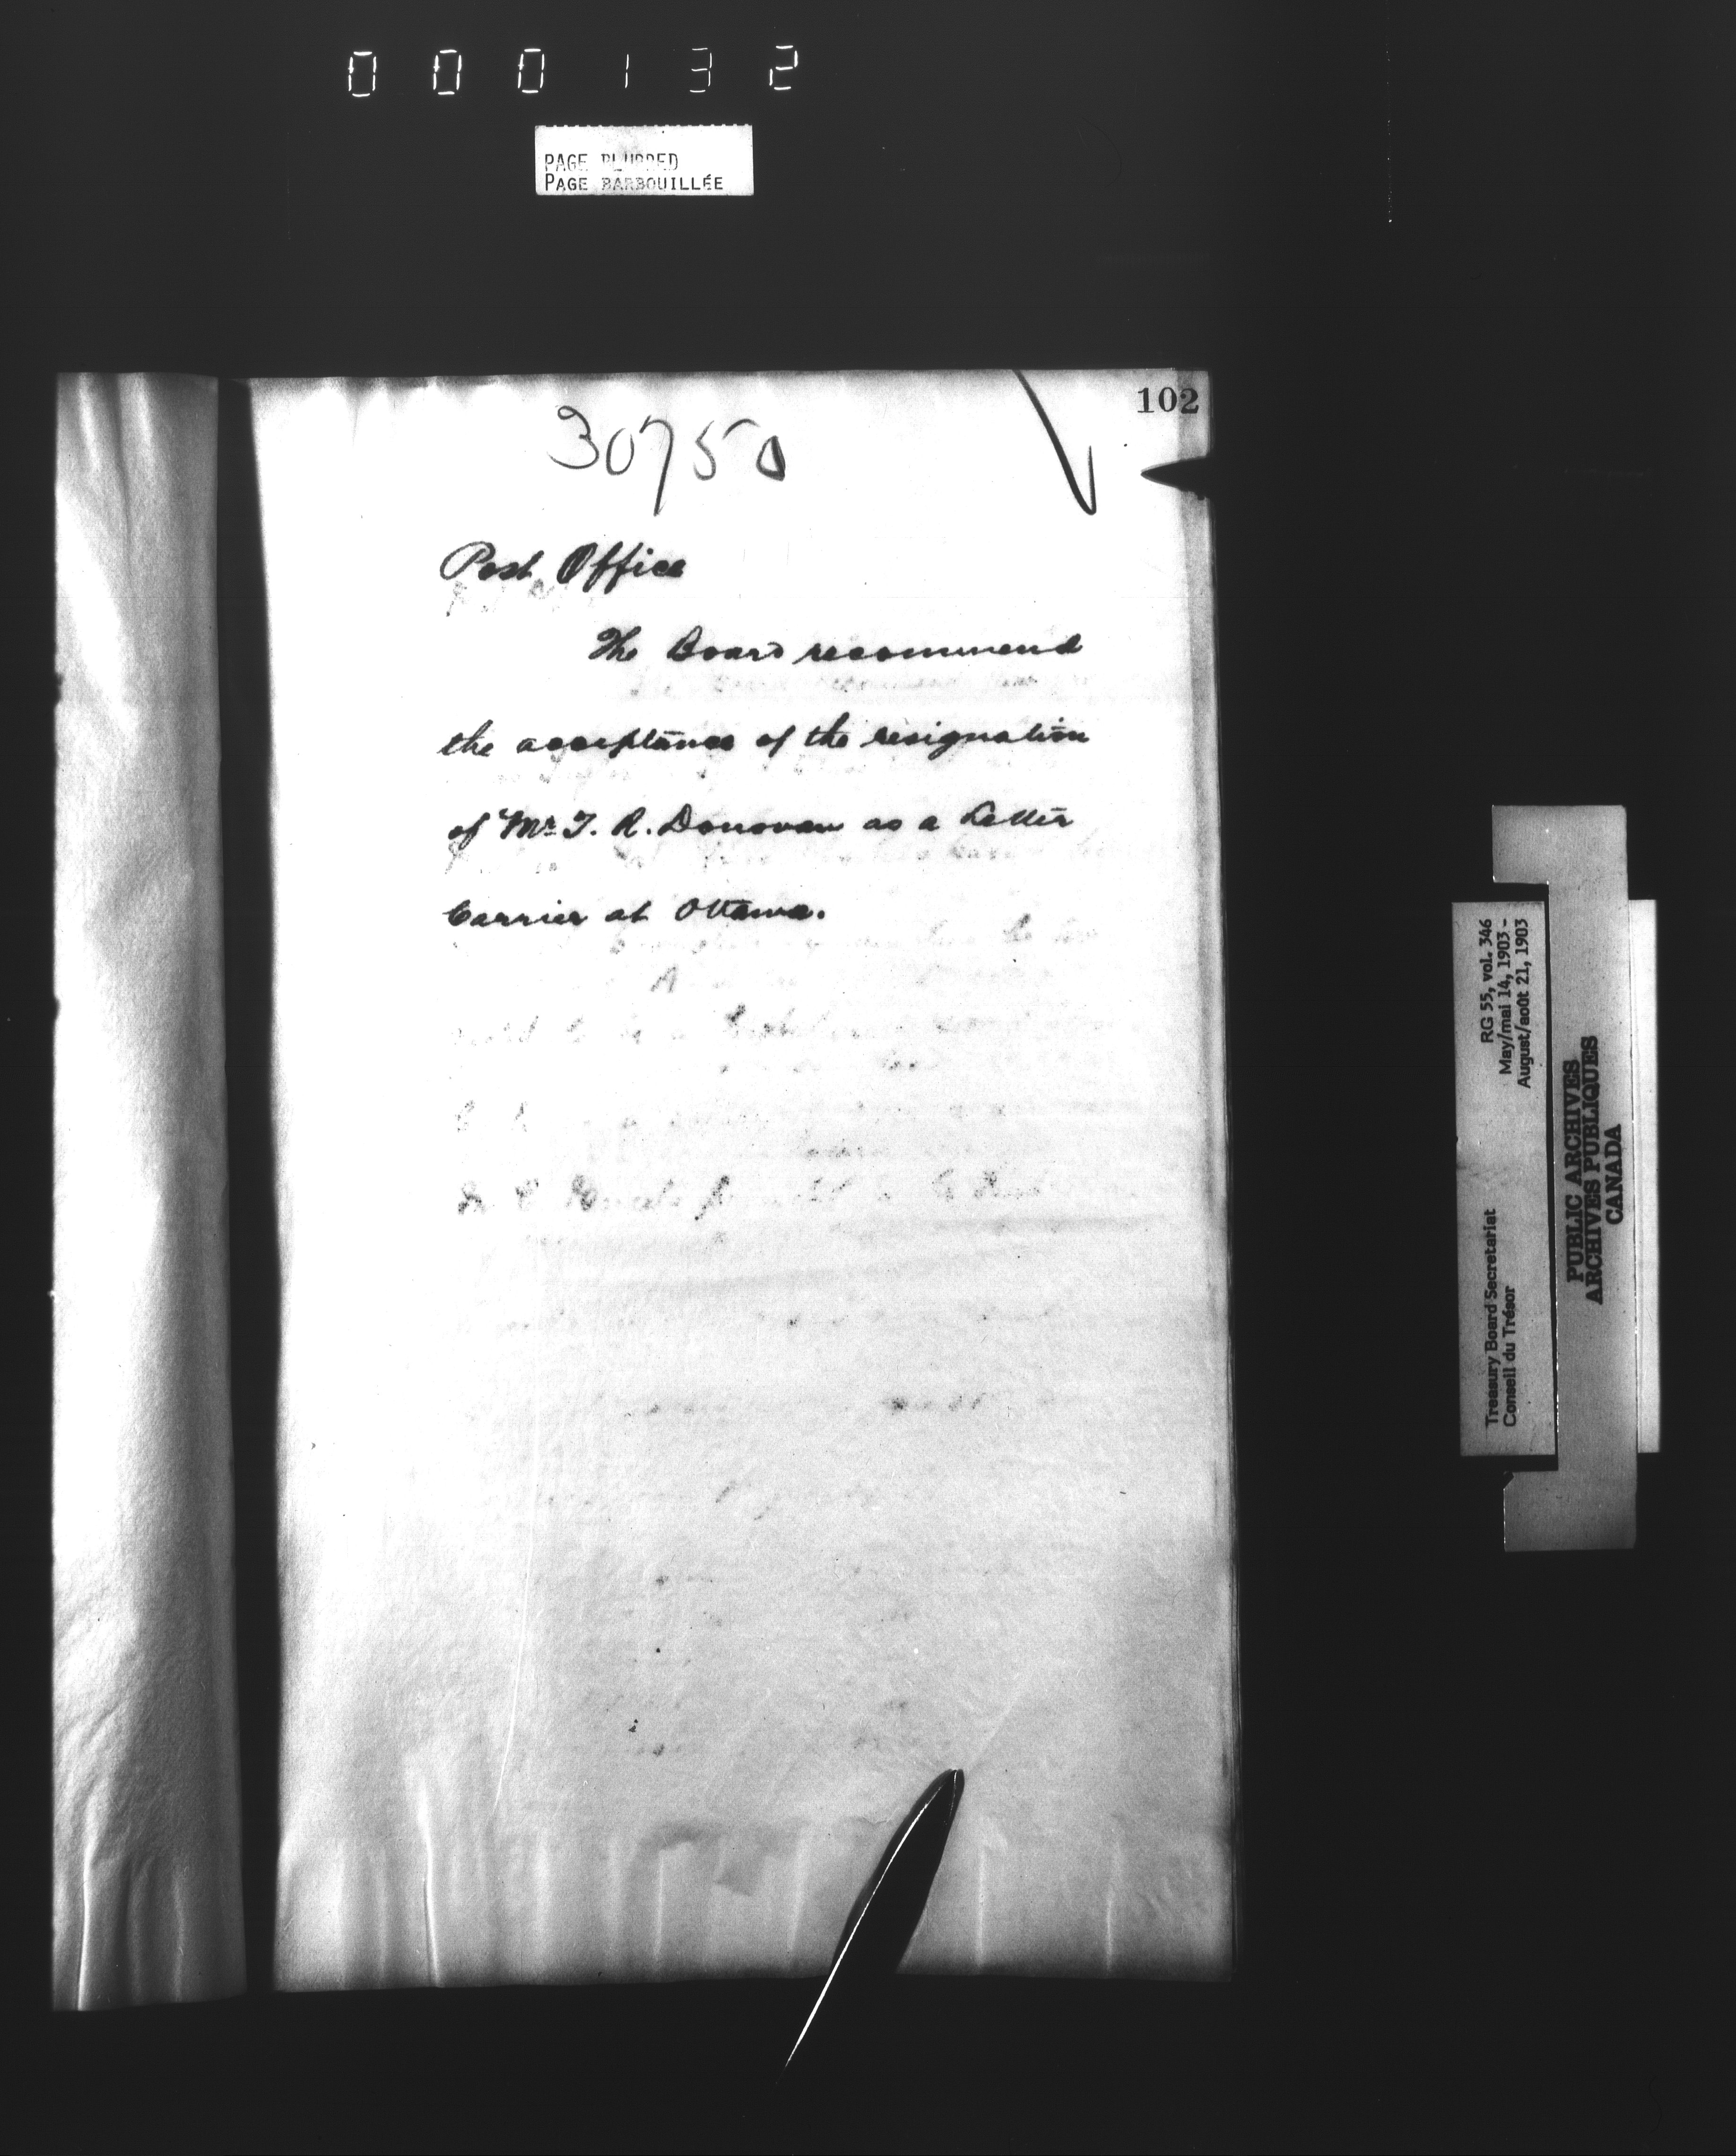 000132
PAGE BLURRED
PAGE BARBOUILLÉE
102
30750
Post Office
The Board recommend
the acceptance of the resignation
of Mr. T. R. Donovan as a Letter
Carrier at Ottawa.
RG 55, vol. 346
May/mai 14, 1903 -
August/août 21, 1903
Treasury Board Secretariat
Conseil du Trésor
PUBLIC ARCHIVES
ARCHIVES PUBLIQUES
CANADA